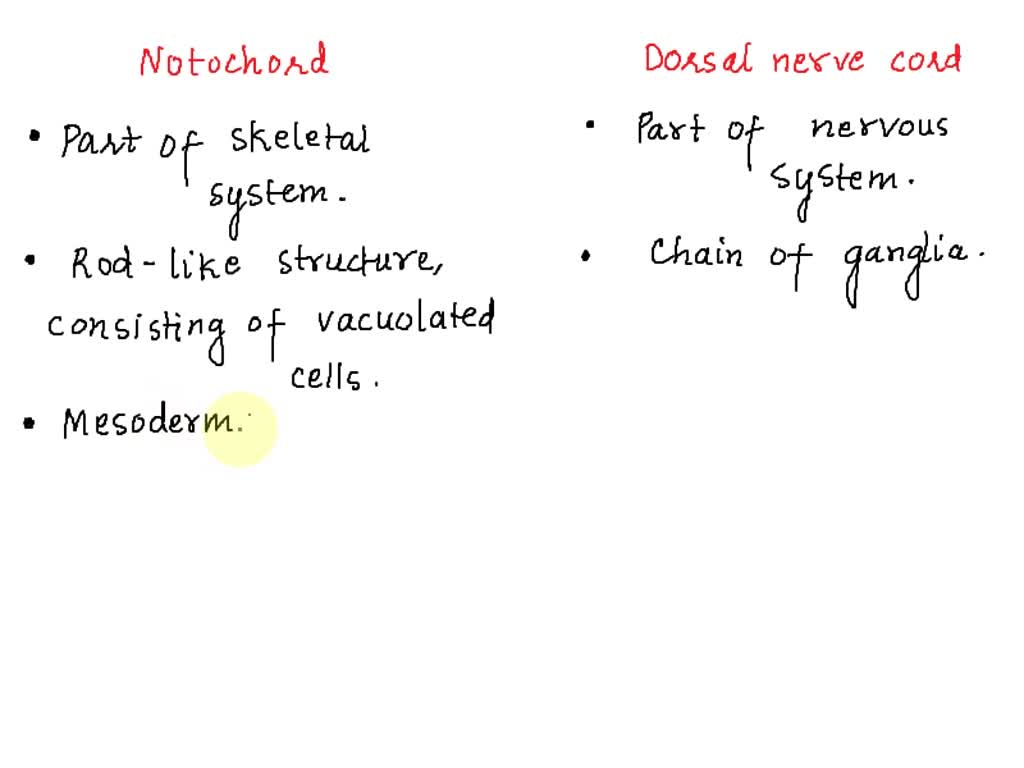 Notochord
• Part of skeletal
system.
• Rod-like structure,
consisting of vacuolated
cells.
• Mesoderm.
Dorsal nerve cord
• Part of nervous
system.
• Chain of ganglia.